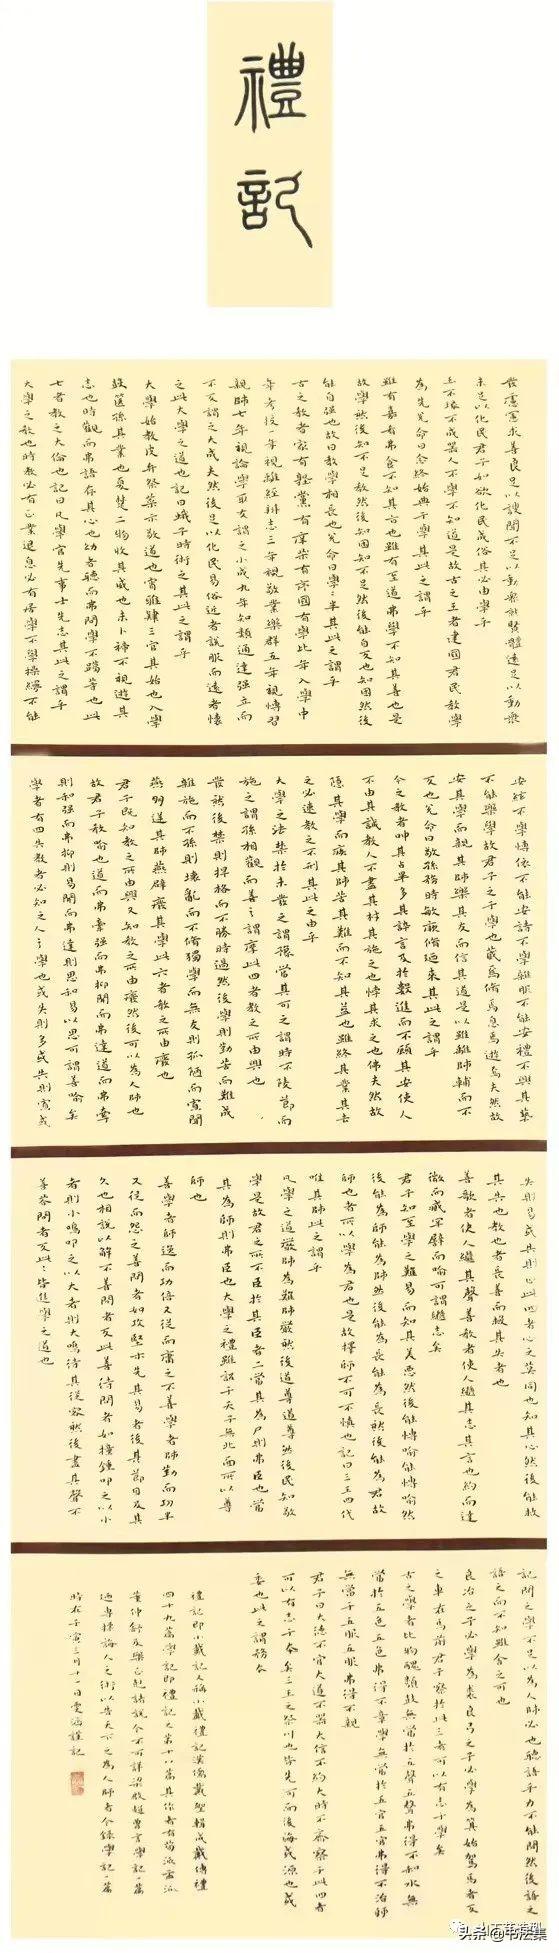 禮記
發慮憲求善良足以謏聞不足以動衆就賢體遠足以動衆
未足以化民君子如欲化民成俗其必由學乎
玉不琢不成器人不學不知道是故古之王者建國君民教學
為先兌命曰念終始典于學其此之謂乎
雖有嘉肴弗食不知其旨也雖有至道弗學不知其善也是
故學然後知不足教然後知困知不足然後能自反也知困然後
能自強也故曰教學相長也兌命曰學學半其此之謂乎
古之教者家有塾黨有庠術有序國有學比年入學中
年考校一年視離經辨志三年視敬業樂群五年視博習
親師七年視論學取友謂之小成九年知類通達強立而
不反謂之大成夫然後足以化民易俗近者說服而遠者懷
之此大學之道也記曰蛾子時術之其此之謂乎
大學始教皮弁祭菜示敬道也宵雅肄三官其始也入學
鼓篋孫其業也夏楚二物收其威也未卜禘不視遊其
志也時觀而弗語存其心也幼者聽而弗問學不躐等也此
七者教之大倫也記曰凡學官先事士先志其此之謂乎
大學之教也時教必有正業退息必有居學不學操縵不能
安弦不學博依不能安詩不學雜服不能安禮不興其藝
不能樂學故君子之于學也藏焉脩焉息焉遊焉夫然故
安其學而親其師樂其友而信其道是以雖離師輔而不
反也兌命曰敬孫務時敏厥脩乃來其此之謂乎
今之教者呻其占畢多其訊言及於數進而不顧其安使人
不由其誠教人不盡其材其施之也悖其求之也佛夫然故
隱其學而疾其師苦其難而不知其益也雖終其業其去
之必速教之不刑其此之由乎
大學之法禁於未發之謂豫當其可之謂時不陵節而
施之謂孫相觀而善之謂摩此四者教之所由興也
發然後禁則扞格而不勝時過然後學則勤苦而難成
雜施而不孫則壞亂而不脩獨學而無友則孤陋而寡聞
燕朋逆其師燕辟廢其學此六者教之所由廢也
君子既知教之所由興又知教之所由廢然後可以為人師也
故君子教喻也道而弗牽強而弗抑開而弗達道而弗牽
則和強而弗抑則易開而弗達則思和易以思可謂善喻矣
學者有四失教者必知之人之學也或失則多或失則寡或
失則易或失則止此四者心之莫同也知其心然後能救
其失也教也者長善而救其失者也
善歌者使人繼其聲善教者使人繼其志其言也約而達
微而臧罕譬而喻可謂繼志矣
君子知至學之難易而知其美惡然後能博喻能博喻然
後能為師能為師然後能為長能為長然後能為君故
師也者所以學為君也是故擇師不可不慎也記曰三王四代
唯其師此之謂乎
凡學之道嚴師為難師嚴然後道尊道尊然後民知敬
學是故君之所不臣於其臣者二當其為尸則弗臣也當
其為師則弗臣也大學之禮雖詔于天子無北面所以尊
師也
善學者師逸而功倍又從而庸之不善學者師勤而功半
又從而怨之善問者如攻堅木先其易者後其節目及其
久也相說以解不善問者反此善待問者如撞鐘叩之以小
者則小鳴叩之以大者則大鳴待其從容然後盡其聲不
善答問者反此此皆進學之道也
記問之學不足以為人師必也聽語乎力不能問然後語之
語之而不知雖舍之可也
良冶之子必學為裘良弓之子必學為箕始駕馬者反
之車在馬前君子察於此三者可以有志于學矣
古之學者比物醜類鼓無當於五聲五聲弗得不和水無
當於五色五色弗得不章學無當於五官五官弗得不治師
無當于五服五服弗得不親
君子曰大德不官大道不器大信不約大時不齊察于此四者
可以有志于本矣三王之祭川也皆先河而後海或源也或
委也此之謂務本
禮記即小戴記又稱小戴禮記漢儒戴聖輯成戴傳禮
四十九篇學記即禮記之第十八篇其作者有荀派孟派
董仲舒及樂正克諸說今不可詳梁啟超曾言學記一篇
乃專採誨人之術以告天下之為人師者今錄學記一篇
時在壬寅三月十一日
頭条@书法集